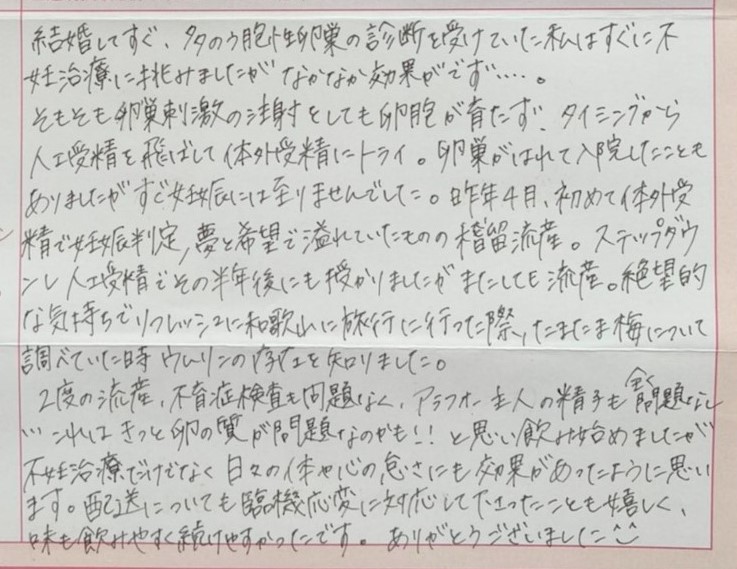 結婚してすぐ、多のう胞性卵巣の診断を受けていた私はすぐに不
妊治療に挑みましたが なかなか効果がでず….。
そもそも卵巣刺激の注射をしても卵胞が育たず、タイミングから
人工受精を飛ばして体外受精にトライ。卵巣がはれて入院したことも
ありましたがすぐ妊娠には至りませんでした。昨年4月、初めて体外受
精で妊娠判定、夢と希望で溢れていたものの稽留流産。ステップダウ
ンし人工受精でその半年後にも授かりましたがまたしても流産。絶望的
な気持ちでリフレッシュに和歌山に旅行に行った際、たまたま梅について
調べていた時 ウムリンの存在を知りました。
2度の流産、不育症検査も問題なく、アラフォー主人の精子も全く問題なし
… これはきっと卵の質が問題なのかも!! と思い飲み始めましたが
不妊治療だけでなく日々の体や心の怠さにも効果があったように思い
ます。配送についても臨機応変に対応して下さったことも嬉しく、
味も飲みやすく続けやすかったです。ありがとうございました^^